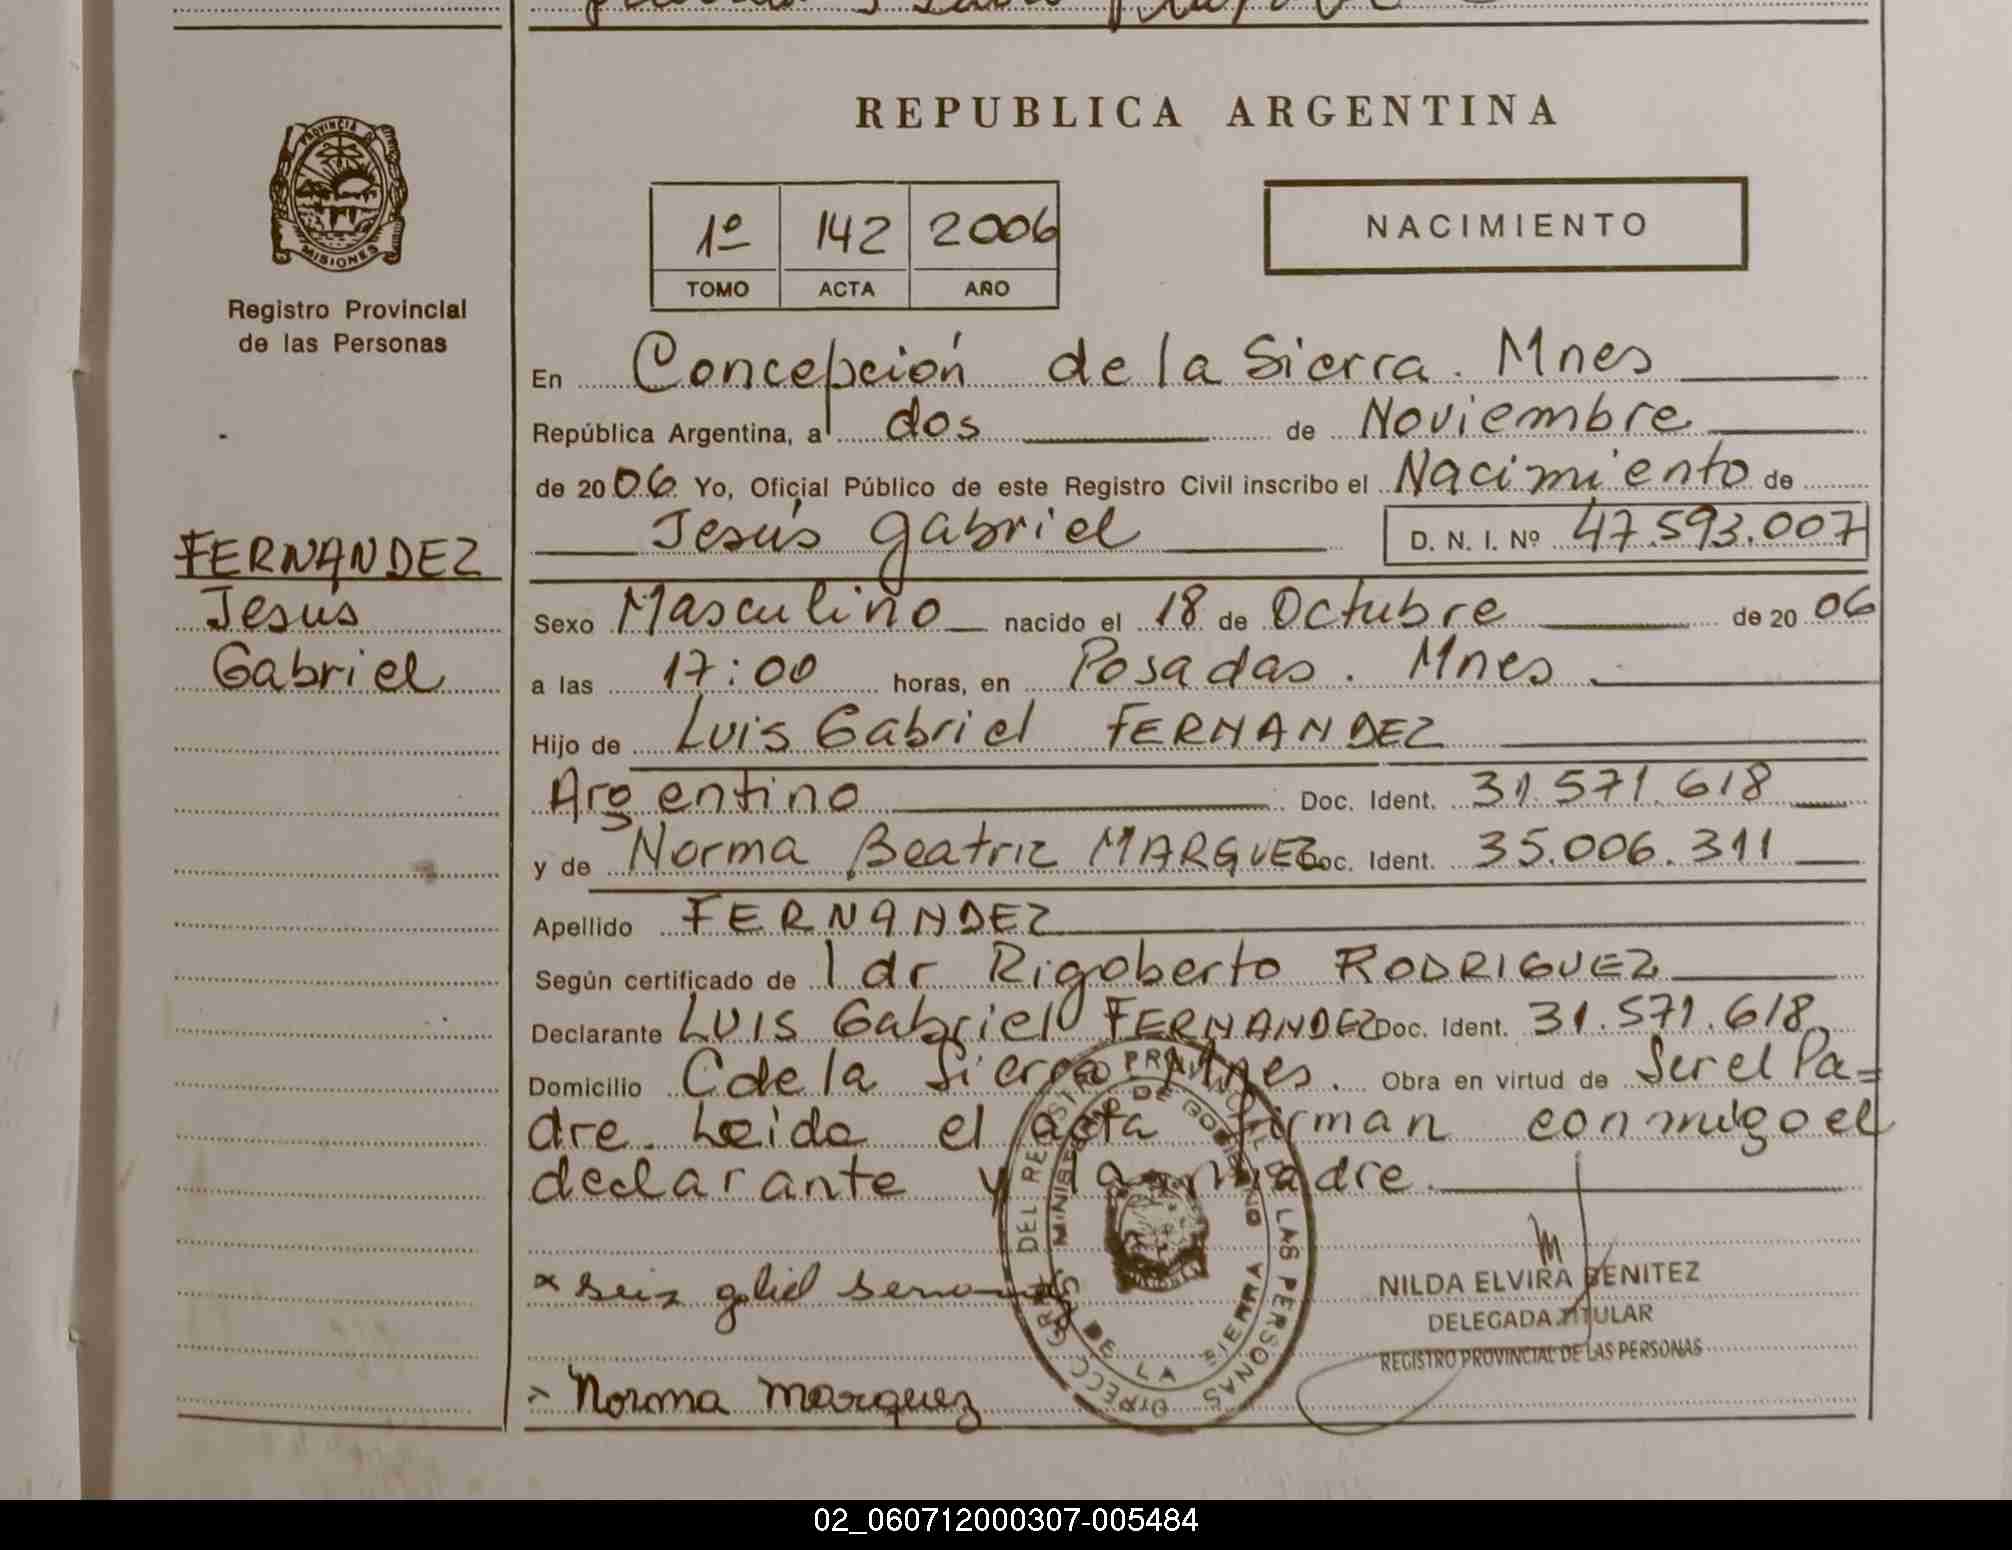 REPUBLICA ARGENTINA
PROVINCIA DE MISIONES
Registro Provincial
de las Personas
1º 142 2006
TOMO ACTA AÑO
NACIMIENTO
En Concepción de la Sierra. Mnes
República Argentina, a dos de Noviembre
de 2006 Yo, Oficial Público de este Registro Civil inscribo el Nacimiento de
Jesús Gabriel D. N. I. Nº 47.593.007
FERNANDEZ
Jesús
Gabriel
Sexo Masculino nacido el 18 de Octubre de 20 06
a las 17:00 horas, en Posadas. Mnes
Hijo de Luis Gabriel FERNANDEZ
Argentino Doc. Ident. 31.571.618
y de Norma Beatriz MARQUEZ Doc. Ident. 35.006.311
Apellido FERNANDEZ
Según certificado de l dr Rigoberto RODRIGUEZ
Declarante LUIS Gabriel FERNANDEZ Doc. Ident. 31.571.618
Domicilio C de la Sierra Mnes. Obra en virtud de Ser el Pa=
dre. Leida el acta firman conmigo el
declarante y la madre.
DIRECC GRAL DEL REGISTRO PROVINCIAL DE LAS PERSONAS
MINISTERIO DE GOBIERNO
DE LA SIERRA
NILDA ELVIRA BENITEZ
DELEGADA TITULAR
REGISTRO PROVINCIAL DE LAS PERSONAS
Norma Marquez
02_060712000307-005484